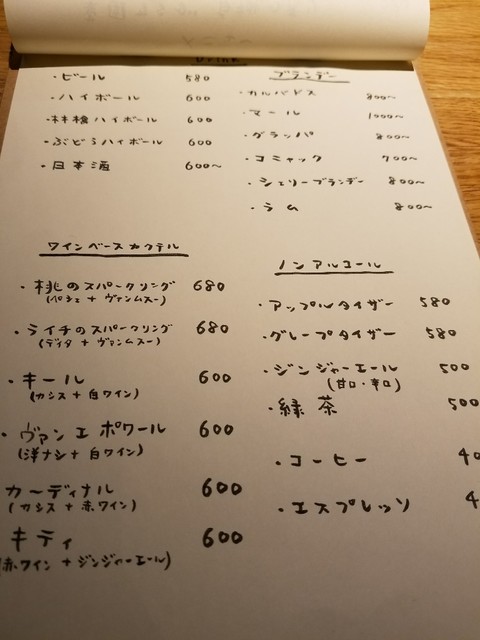 Drink
・ビール 580
・ハイボール 600
・林檎ハイボール 600
・ぶどうハイボール 600
・日本酒 600〜
ワインベースカクテル
・桃のスパークリング 680
(ペシェ + ヴァンムスー)
・ライチのスパークリング 680
(ディタ + ヴァンムスー)
・キール 600
(カシス + 白ワイン)
・ヴァン エ ポワール 600
(洋ナシ + 白ワイン)
カーディナル 600
(カシス + 赤ワイン)
キティ 600
(赤ワイン + ジンジャーエール)
ブランデー
・カルバドス 800〜
・マール 1000〜
・グラッパ 800〜
・コニャック 700〜
・シェリーブランデー 800〜
・ラム 800〜
ノンアルコール
・アップルタイザー 580
・グレープタイザー 580
・ジンジャーエール 500
(甘口・辛口)
・緑茶 500
・コーヒー 40
・エスプレッソ 4